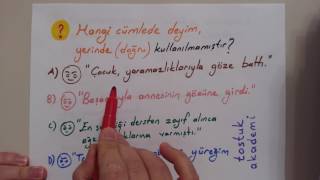 ? Hangi cümlede deyim,
yerinde (doğru) kullanılmamıştır?
A) "Çocuk, yaramazlıklarıyla göze battı."
B) "Başarıyla annesinin gözüne girdi."
C) "En dersten zayıf alınca
yarmıştı."
D) yüreğim
tostuk
akademi